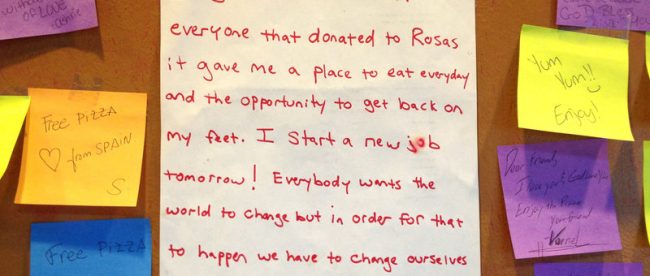 of LOVE
everyone that donated to Rosas
it gave me a place to eat everyday
and the opportunity to get back on
my feet. I start a new job
tomorrow! Everybody wants the
world to change but in order for that
to happen we have to change ourselves
Free PIZZA
from SPAIN
S.
Free PIZZA
GOD Bless
Yum
Yum!!
Enjoy!
Dear Friend,
I love you &
Enjoy the Pizza
your friend